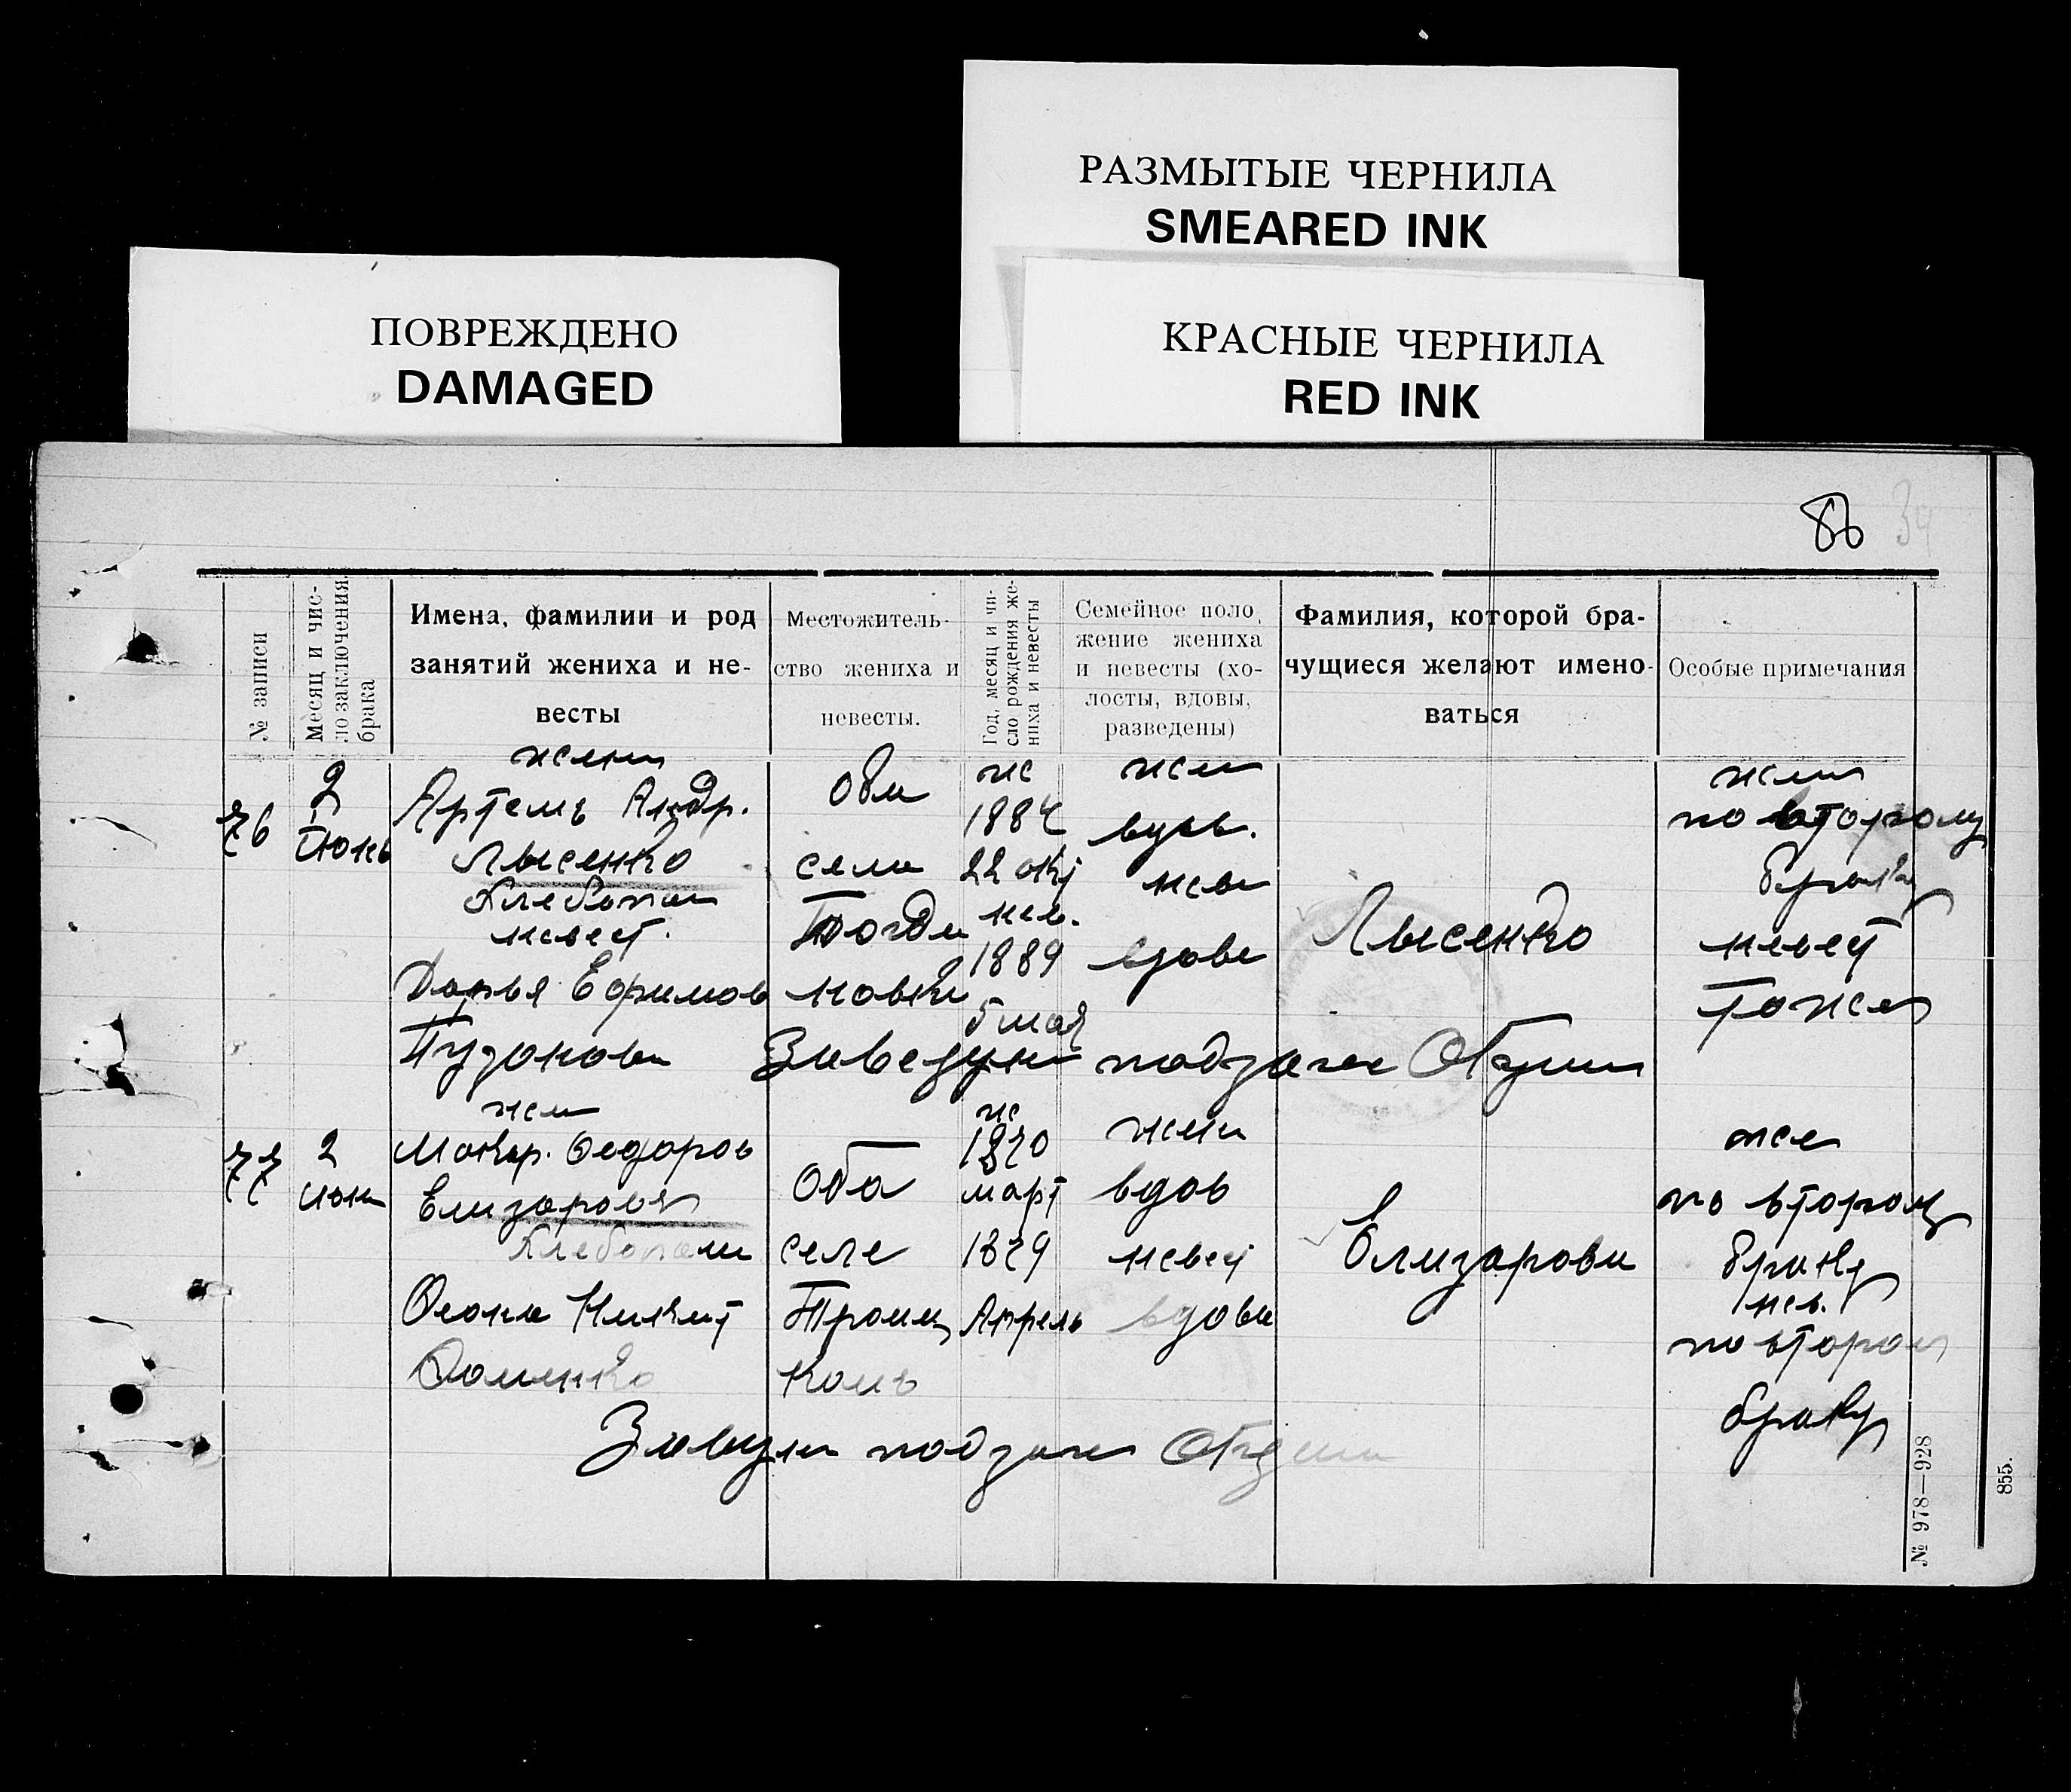 РАЗМЫТЫЕ ЧЕРНИЛА
SMEARED INK
ПОВРЕЖДЕНО
DAMAGED
КРАСНЫЕ ЧЕРНИЛА
RED INK
86 34
№ записи
Месяц и чис-
ло заключения
брака
Имена, фамилии и род
занятий жениха и не-
весты
Местожитель-
ство жениха и
невесты.
Год, месяц и чи-
сло рождения же-
ниха и невесты
Семейное поло,
жение жениха
и невесты (хо-
лосты, вдовы,
разведены)
Фамилия, которой бра-
чущиеся желают имено-
ваться
Особые примечания
76
2
Июнь
Артемъ Андр.
Лысенко
невест.
Дарья Ефимов
Оба
села
Богда
новки
1884
22 окт
нев.
1889
5 мая
вдов.
нев
вдова
Лысенко
по второму
браку
невест
тоже
77
2
июн
Макар. Федоров
Елизаров
Хлебопаш
Никит
Оба
селе
Троиц
комъ
1870
март
1879
Апрель
вдов
невест
вдова
Елизарови
по второму
браку
нев.
по втором
браку
№ 978—928
855.